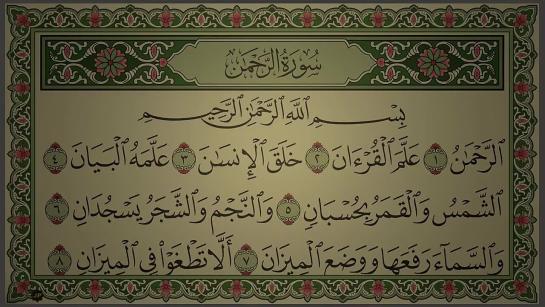 سُورَةُ الرَّحْمَٰن
بِسْمِ اللَّهِ الرَّحْمَٰنِ الرَّحِيمِ
الرَّحْمَٰنُ ١ عَلَّمَ الْقُرْءَانَ ٢ خَلَقَ الْإِنسَٰنَ ٣ عَلَّمَهُ الْبَيَانَ ٤
الشَّمْسُ وَالْقَمَرُ بِحُسْبَانٍ ٥ وَالنَّجْمُ وَالشَّجَرُ يَسْجُدَانِ ٦
وَالسَّمَآءَ رَفَعَهَا وَوَضَعَ الْمِيزَانَ ٧ أَلَّا تَطْغَوْا۟ فِى الْمِيزَانِ ٨